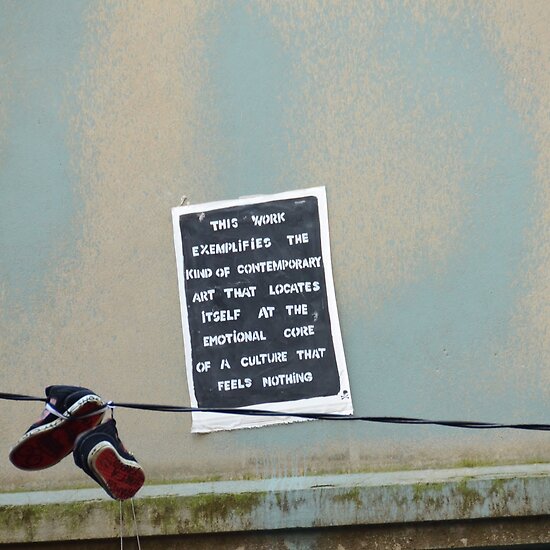 THIS WORK
EXEMPLiFiES THE
KIND OF CONTEMPORARY
ART THAT LOCATES
iTSELF AT THE
EMOTIONAL CORE
OF A CULTURE THAT
FEELS NOTHING